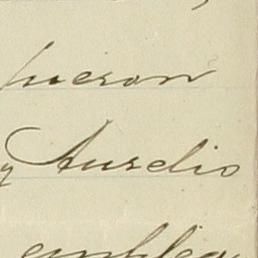 fueron
y Aurelio
emplea